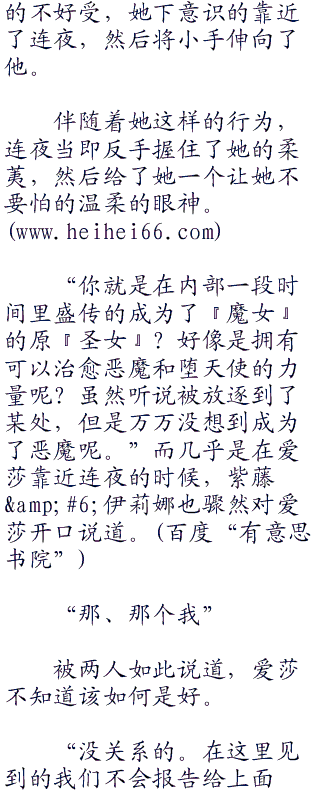 的不好受，她下意识的靠近
了连夜，然后将小手伸向了
他。
伴随着她这样的行为，
连夜当即反手握住了她的柔
荑，然后给了她一个让她不
要怕的温柔的眼神。
(www.heihei66.com)
“你就是在内部一段时
间里盛传的成为了『魔女』
的原『圣女』？好像是拥有
可以治愈恶魔和堕天使的力
量呢？虽然听说被放逐到了
某处，但是万万没想到成为
了恶魔呢。”而几乎是在爱
莎靠近连夜的时候，紫藤
&amp;#6;伊莉娜也骤然对爱
莎开口说道。(百度“有意思
书院”)
“那、那个我”
被两人如此说道，爱莎
不知道该如何是好。
“没关系的。在这里见
到的我们不会报告给上面